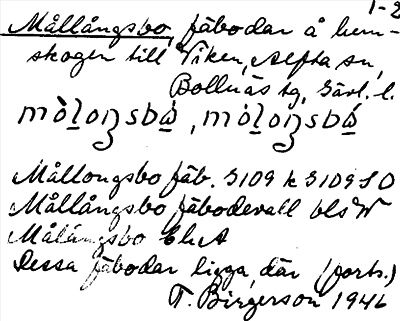 1-2
Mållångsbo, fäbodar å hem-
skogen till Viken, Alfta sn,
Bollnäs tg, Gävl. l.
mòl̲oŋsbå̲, mól̲oŋsbå̲
Mållongsbo fäb. 3109 k 3109 S O
Mållångsbo fäbodevall bls W
Målångsbo Ek A
Dessa fäbodar ligga där (forts.)
T. Birgerson 1946